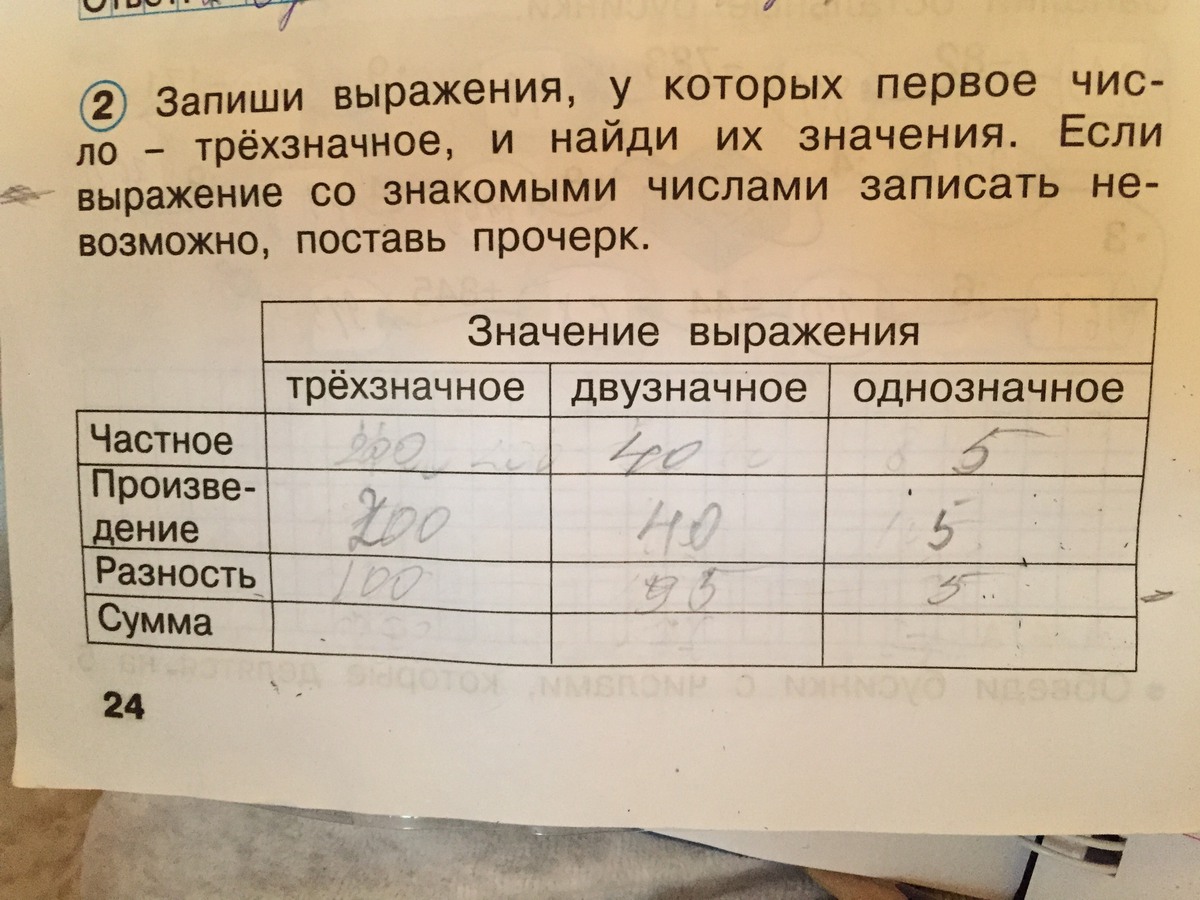 2 Запиши выражения, у которых первое чис-
ло – трёхзначное, и найди их значения. Если
выражение со знакомыми числами записать не-
возможно, поставь прочерк.
Значение выражения
трёхзначное двузначное однозначное
Частное 200 40 5
Произве-
дение 200 40 5
Разность 100 95 5
Сумма
24